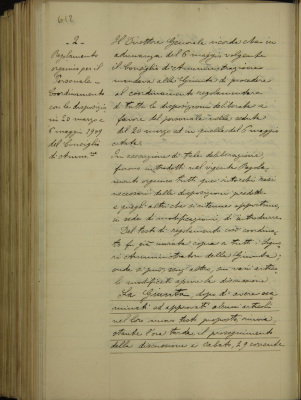 612
- 2 -
Regolamento
organico per il
Personale -
Coordinamento
con le disposizioni
in 20 marzo e
6 maggio 1909
del Consiglio
di Ammne
Il Direttore Generale ricorda che in
adunanza del 6 maggio volgente
il Consiglio di Amministrazione
mandava alla Giunta di procedere
al coordinamento regolamentare
di tutte le disposizioni deliberate a
favore del personale nella seduta
del 20 marzo ed in quella del 6 maggio
In esecuzione di tale deliberazione,
furono introdotti nel vigente Regola-
mento organico tutti quei
necessari dalle disposizioni predette
e quegli altri che si ritennero opportuni,
in sede di modificazioni, di introdurre.
Del testo di regolamento così coordina-
to fu già inviata copia a tutti i Signo-
ri Amministratori della Giunta;
onde si può, senz'altro, su
le modificate aprire la discussione.
La Giunta, dopo di avere esa-
minati ed approvati alcuni articoli
nel loro nuovo testo proposto, rinvia,
stante l'ora tarda il proseguimento
della discussione a sabato, 29 corrente